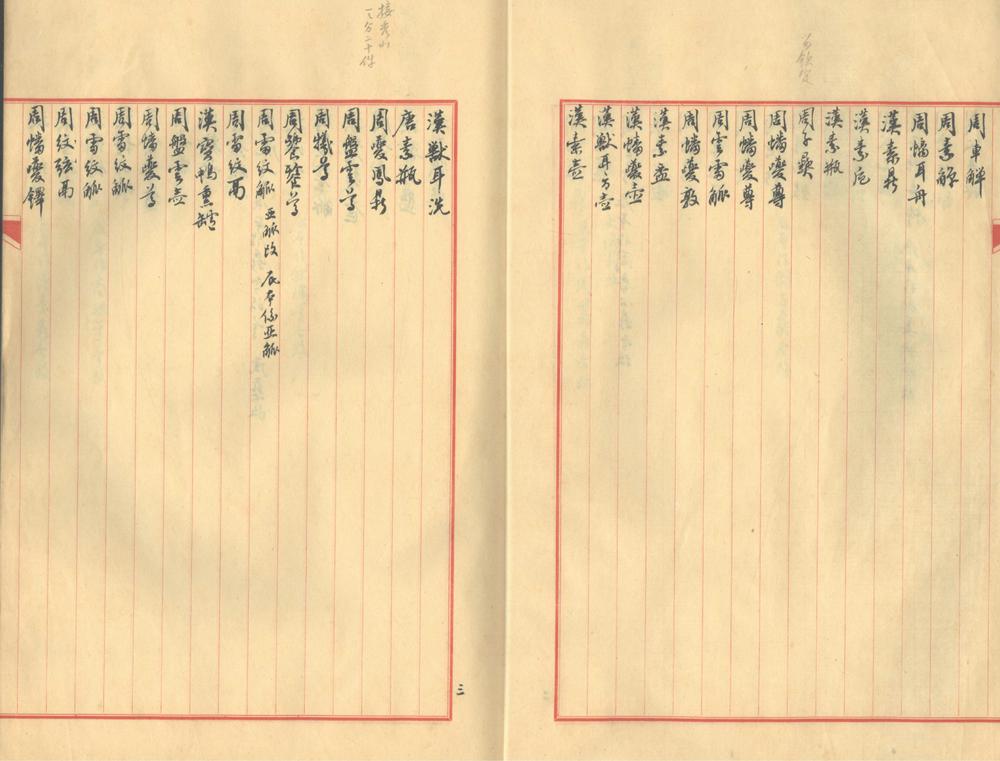 周車觶
周素觶
周蟠耳舟
漢素鼎
漢素卮
漢素瓶
周子
周蟠夔尊
周蟠夔尊
周雲雷觚
周蟠夔敦
漢素盉
漢蟠夔壺
漢獸耳方壺
漢素壺
漢獸耳洗
唐素瓶
周夔鳳彝
周盤雲尊
周犧尊
周饕餮尊
周雷紋觚 亞觚改 底本係亞觚
周雷紋鬲
漢寶鴨熏罏
周盤雲壺
周蟠夔尊
周雷紋觚
周雷紋觚
周紋弦鬲
周蟠夔鐸
三